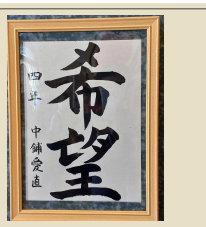 希望
四年 中鋪愛直